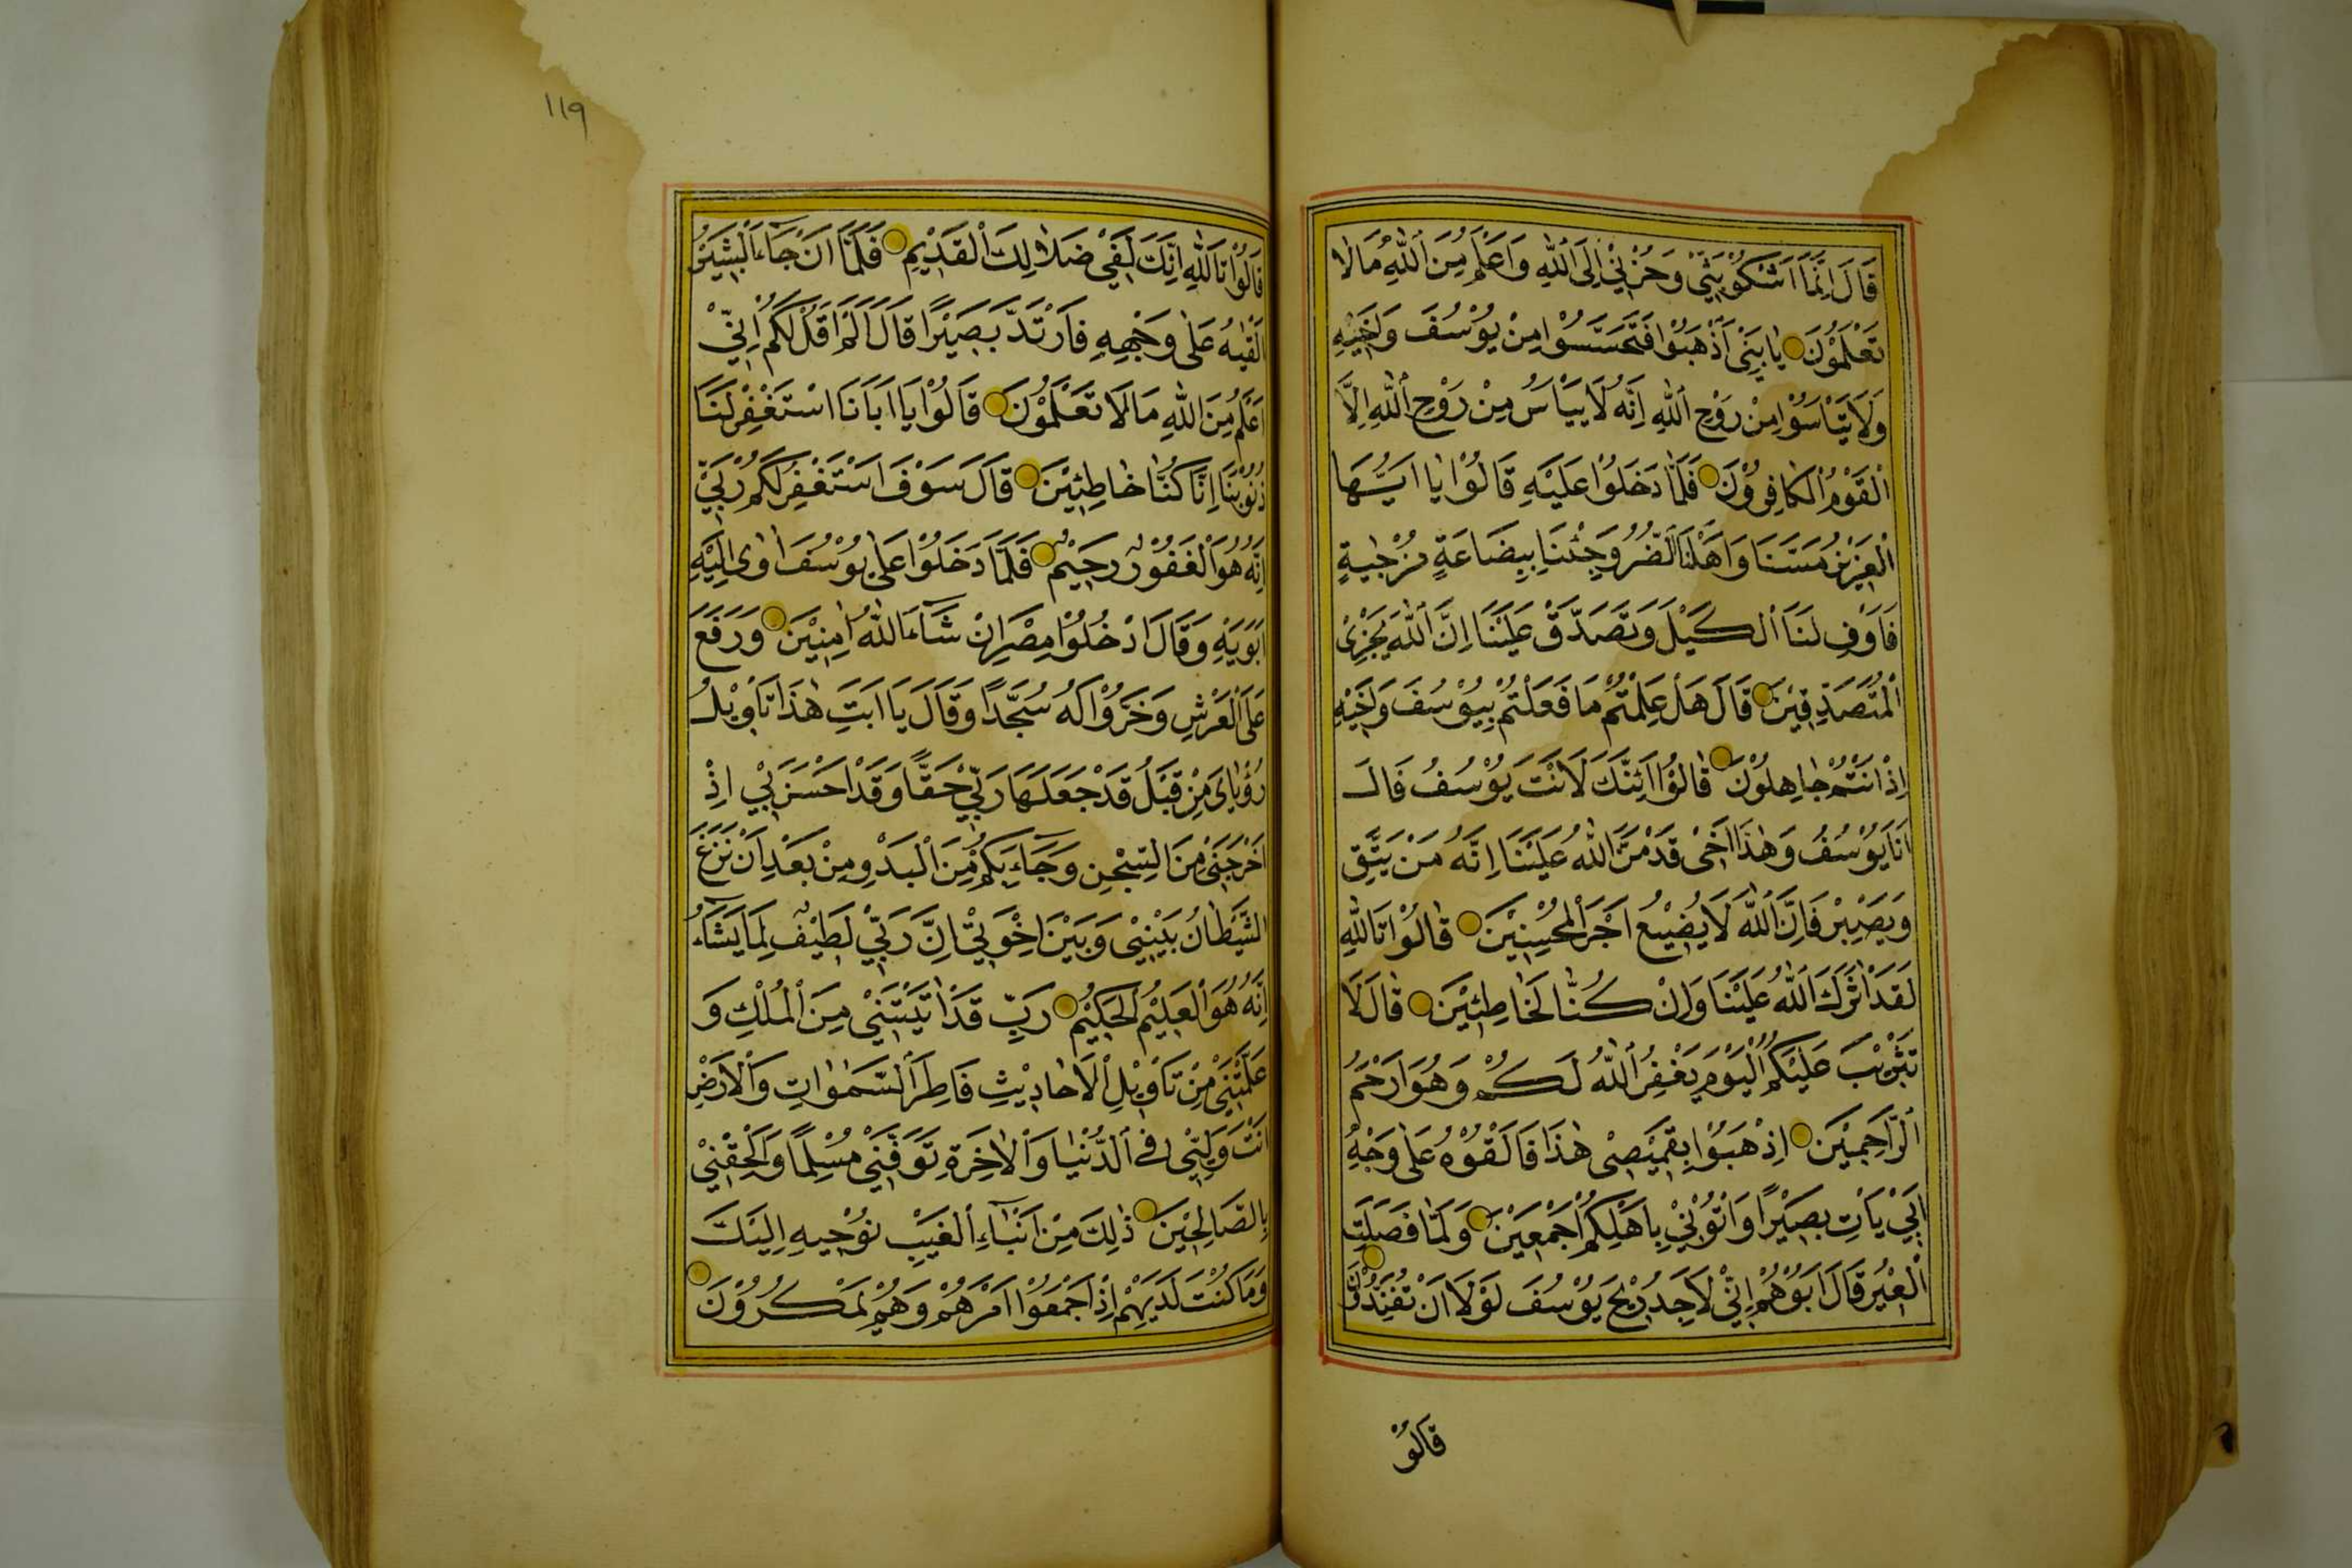 قَالَ اِنَّمَا اَشْكُوْ بَثِّيْ وَحُزْنِيْ اِلَى اللّٰهِ وَاَعْلَمُ مِنَ اللّٰهِ مَا لَا
تَعْلَمُوْنَ يَا بَنِيَّ اذْهَبُوْا فَتَحَسَّسُوْا مِنْ يُوْسُفَ وَاَخِيْهِ
وَلَا تَيْاَسُوْا مِنْ رَوْحِ اللّٰهِ اِنَّهُ لَا يَيْاَسُ مِنْ رَوْحِ اللّٰهِ اِلَّا
الْقَوْمُ الْكَافِرُوْنَ فَلَمَّا دَخَلُوْا عَلَيْهِ قَالُوْا يَا اَيُّهَا
الْعَزِيْزُ مَسَّنَا وَاَهْلَنَا الضُّرُّ وَجِئْنَا بِبِضَاعَةٍ مُزْجٰيةٍ
فَاَوْفِ لَنَا الْكَيْلَ وَتَصَدَّقْ عَلَيْنَا اِنَّ اللّٰهَ يَجْزِى
الْمُتَصَدِّقِيْنَ قَالَ هَلْ عَلِمْتُمْ مَا فَعَلْتُمْ بِيُوْسُفَ وَاَخِيْهِ
اِذْ اَنْتُمْ جَاهِلُوْنَ قَالُوْا اَئِنَّكَ لَاَنْتَ يُوْسُفُ قَالَ
اَنَا يُوْسُفُ وَهٰذَا اَخِىْ قَدْ مَنَّ اللّٰهُ عَلَيْنَا اِنَّهُ مَنْ يَتَّقِ
وَيَصْبِرْ فَاِنَّ اللّٰهَ لَا يُضِيْعُ اَجْرَ الْمُحْسِنِيْنَ قَالُوْا تَاللّٰهِ
لَقَدْ اٰثَرَكَ اللّٰهُ عَلَيْنَا وَاِنْ كُنَّا لَخَاطِئِيْنَ قَالَ لَا
تَثْرِيْبَ عَلَيْكُمُ الْيَوْمَ يَغْفِرُ اللّٰهُ لَكُمْ وَهُوَ اَرْحَمُ
الرَّاحِمِيْنَ اِذْهَبُوْا بِقَمِيْصِىْ هٰذَا فَاَلْقُوْهُ عَلٰى وَجْهِ
اَبِيْ يَاْتِ بَصِيْرًا وَاْتُوْنِيْ بِاَهْلِكُمْ اَجْمَعِيْنَ وَلَمَّا فَصَلَتِ
الْعِيْرُ قَالَ اَبُوْهُمْ اِنِّيْ لَاَجِدُ رِيْحَ يُوْسُفَ لَوْلَا اَنْ تُفَنِّدُوْنَ
قَالُوْ
١١٩
قَالُوْا تَاللّٰهِ اِنَّكَ لَفِيْ ضَلَالِكَ الْقَدِيْمِ فَلَمَّا اَنْ جَاءَ الْبَشِيْرُ
اَلْقٰيهُ عَلٰى وَجْهِهِ فَارْتَدَّ بَصِيْرًا قَالَ اَلَمْ اَقُلْ لَكُمْ اِنِّيْ
اَعْلَمُ مِنَ اللّٰهِ مَا لَا تَعْلَمُوْنَ قَالُوْا يَا اَبَانَا اسْتَغْفِرْ لَنَا
ذُنُوْبَنَا اِنَّا كُنَّا خَاطِئِيْنَ قَالَ سَوْفَ اَسْتَغْفِرُ لَكُمْ رَبِّيْ
اِنَّهُ هُوَ الْغَفُوْرُ رَحِيْمُ فَلَمَّا دَخَلُوْا عَلٰى يُوْسُفَ اٰوٰى اِلَيْهِ
اَبَوَيْهِ وَقَالَ ادْخُلُوْا مِصْرَ اِنْ شَاءَ اللّٰهُ اٰمِنِيْنَ وَرَفَعَ
عَلَى الْعَرْشِ وَخَرُّوْا لَهُ سُجَّدًا وَقَالَ يَا اَبَتِ هٰذَا تَاْوِيْلُ
رُؤْيَاىَ مِنْ قَبْلُ قَدْ جَعَلَهَا رَبِّيْ حَقًّا وَقَدْ اَحْسَنَ بِيْ اِذْ
اَخْرَجَنِيْ مِنَ السِّجْنِ وَجَاءَ بِكُمْ مِنَ الْبَدْوِ مِنْ بَعْدِ اَنْ نَزَغَ
الشَّيْطَانُ بَيْنِيْ وَبَيْنَ اِخْوَتِيْ اِنَّ رَبِّيْ لَطِيْفٌ لِمَا يَشَاءُ
اِنَّهُ هُوَ الْعَلِيْمُ الْحَكِيْمُ رَبِّ قَدْ اٰتَيْتَنِيْ مِنَ الْمُلْكِ وَ
عَلَّمْتَنِيْ مِنْ تَاْوِيْلِ الْاَحَادِيْثِ فَاطِرَ السَّمٰوٰاتِ وَالْاَرْضِ
اَنْتَ وَلِيِّى فِى الدُّنْيَا وَالْاٰخِرَةِ تَوَفَّنِيْ مُسْلِمًا وَاَلْحِقْنِيْ
بِالصَّالِحِيْنَ ذٰلِكَ مِنْ اَنْبَاءِ الْغَيْبِ نُوْحِيهِ اِلَيْكَ
وَمَا كُنْتَ لَدَيْهِمْ اِذْ اَجْمَعُوْا اَمْرَهُمْ وَهُمْ يَمْكُرُوْنَ